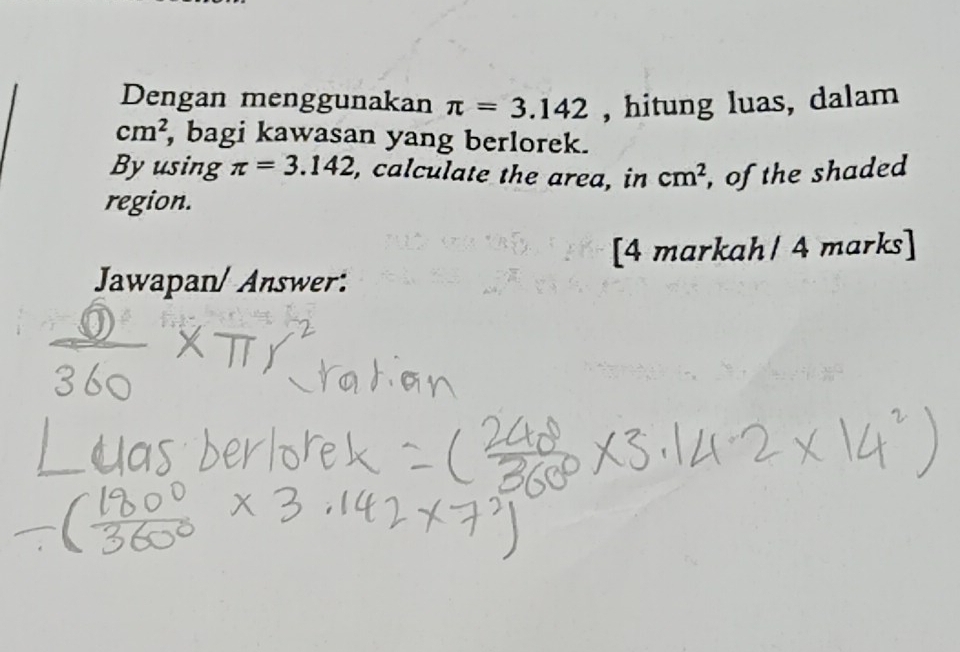 Dengan menggunakan π = 3.142 , hitung luas, dalam
cm², bagi kawasan yang berlorek.
By using π = 3.142, calculate the area, in cm², of the shaded
region.
[4 markah/ 4 marks]
Jawapan/ Answer:
θ/360 × πr²
Luas berlorek = (248/360° ×3.142 × 14²)
-(180°/360° × 3.142×7²)